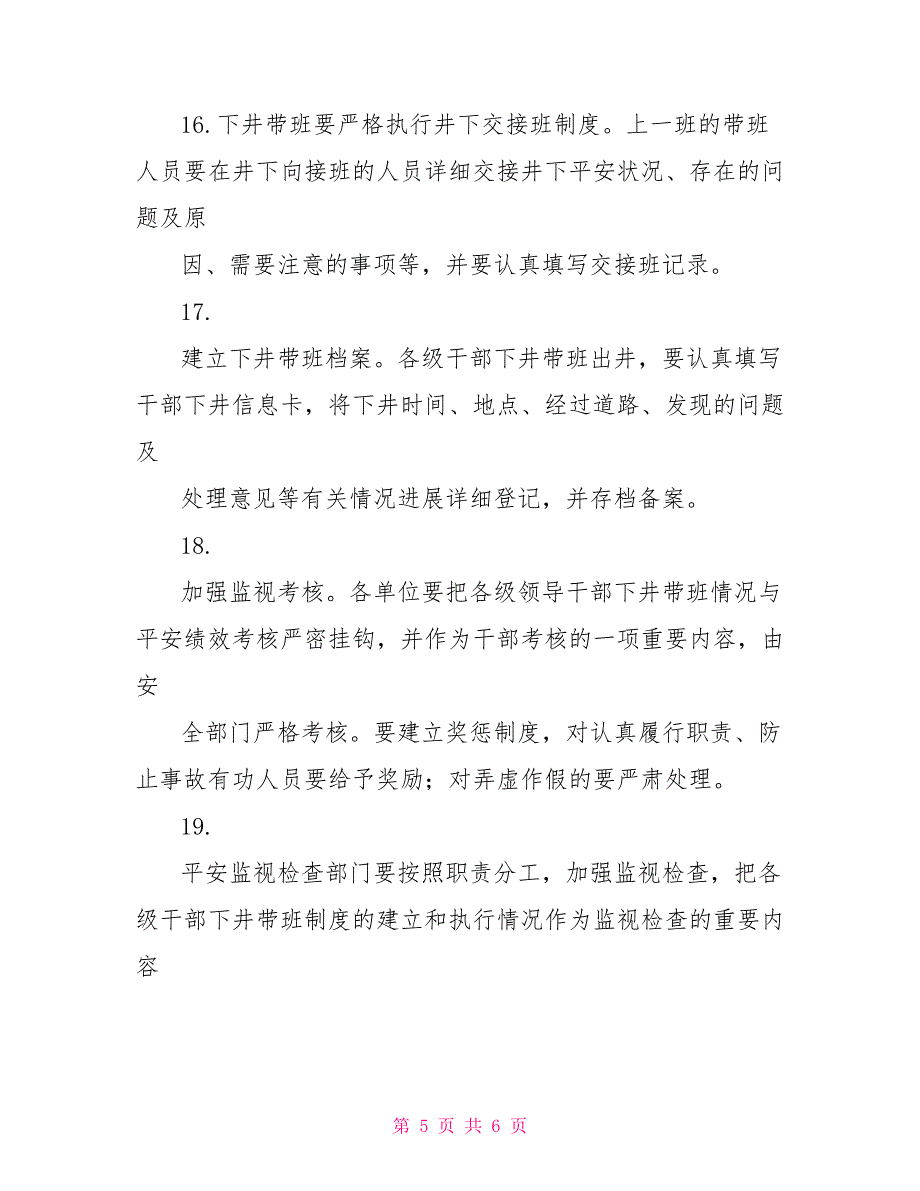 16.下井带班要严格执行井下交接班制度。上一班的带班
人员要在井下向接班的人员详细交接井下平安状况、存在的问
题及原
因、需要注意的事项等，并要认真填写交接班记录。
17.
建立下井带班档案。各级干部下井带班出井，要认真填写
干部下井信息卡，将下井时间、地点、经过道路、发现的问题
及
处理意见等有关情况进展详细登记，并存档备案。
18.
加强监视考核。各单位要把各级领导干部下井带班情况与
平安绩效考核严密挂钩，并作为干部考核的一项重要内容，由
安
全部门严格考核。要建立奖惩制度，对认真履行职责、防
止事故有功人员要给予奖励；对弄虚作假的要严肃处理。
19.
平安监视检查部门要按照职责分工，加强监视检查，把各
级干部下井带班制度的建立和执行情况作为监视检查的重要内
容
第 5 页 共 6 页